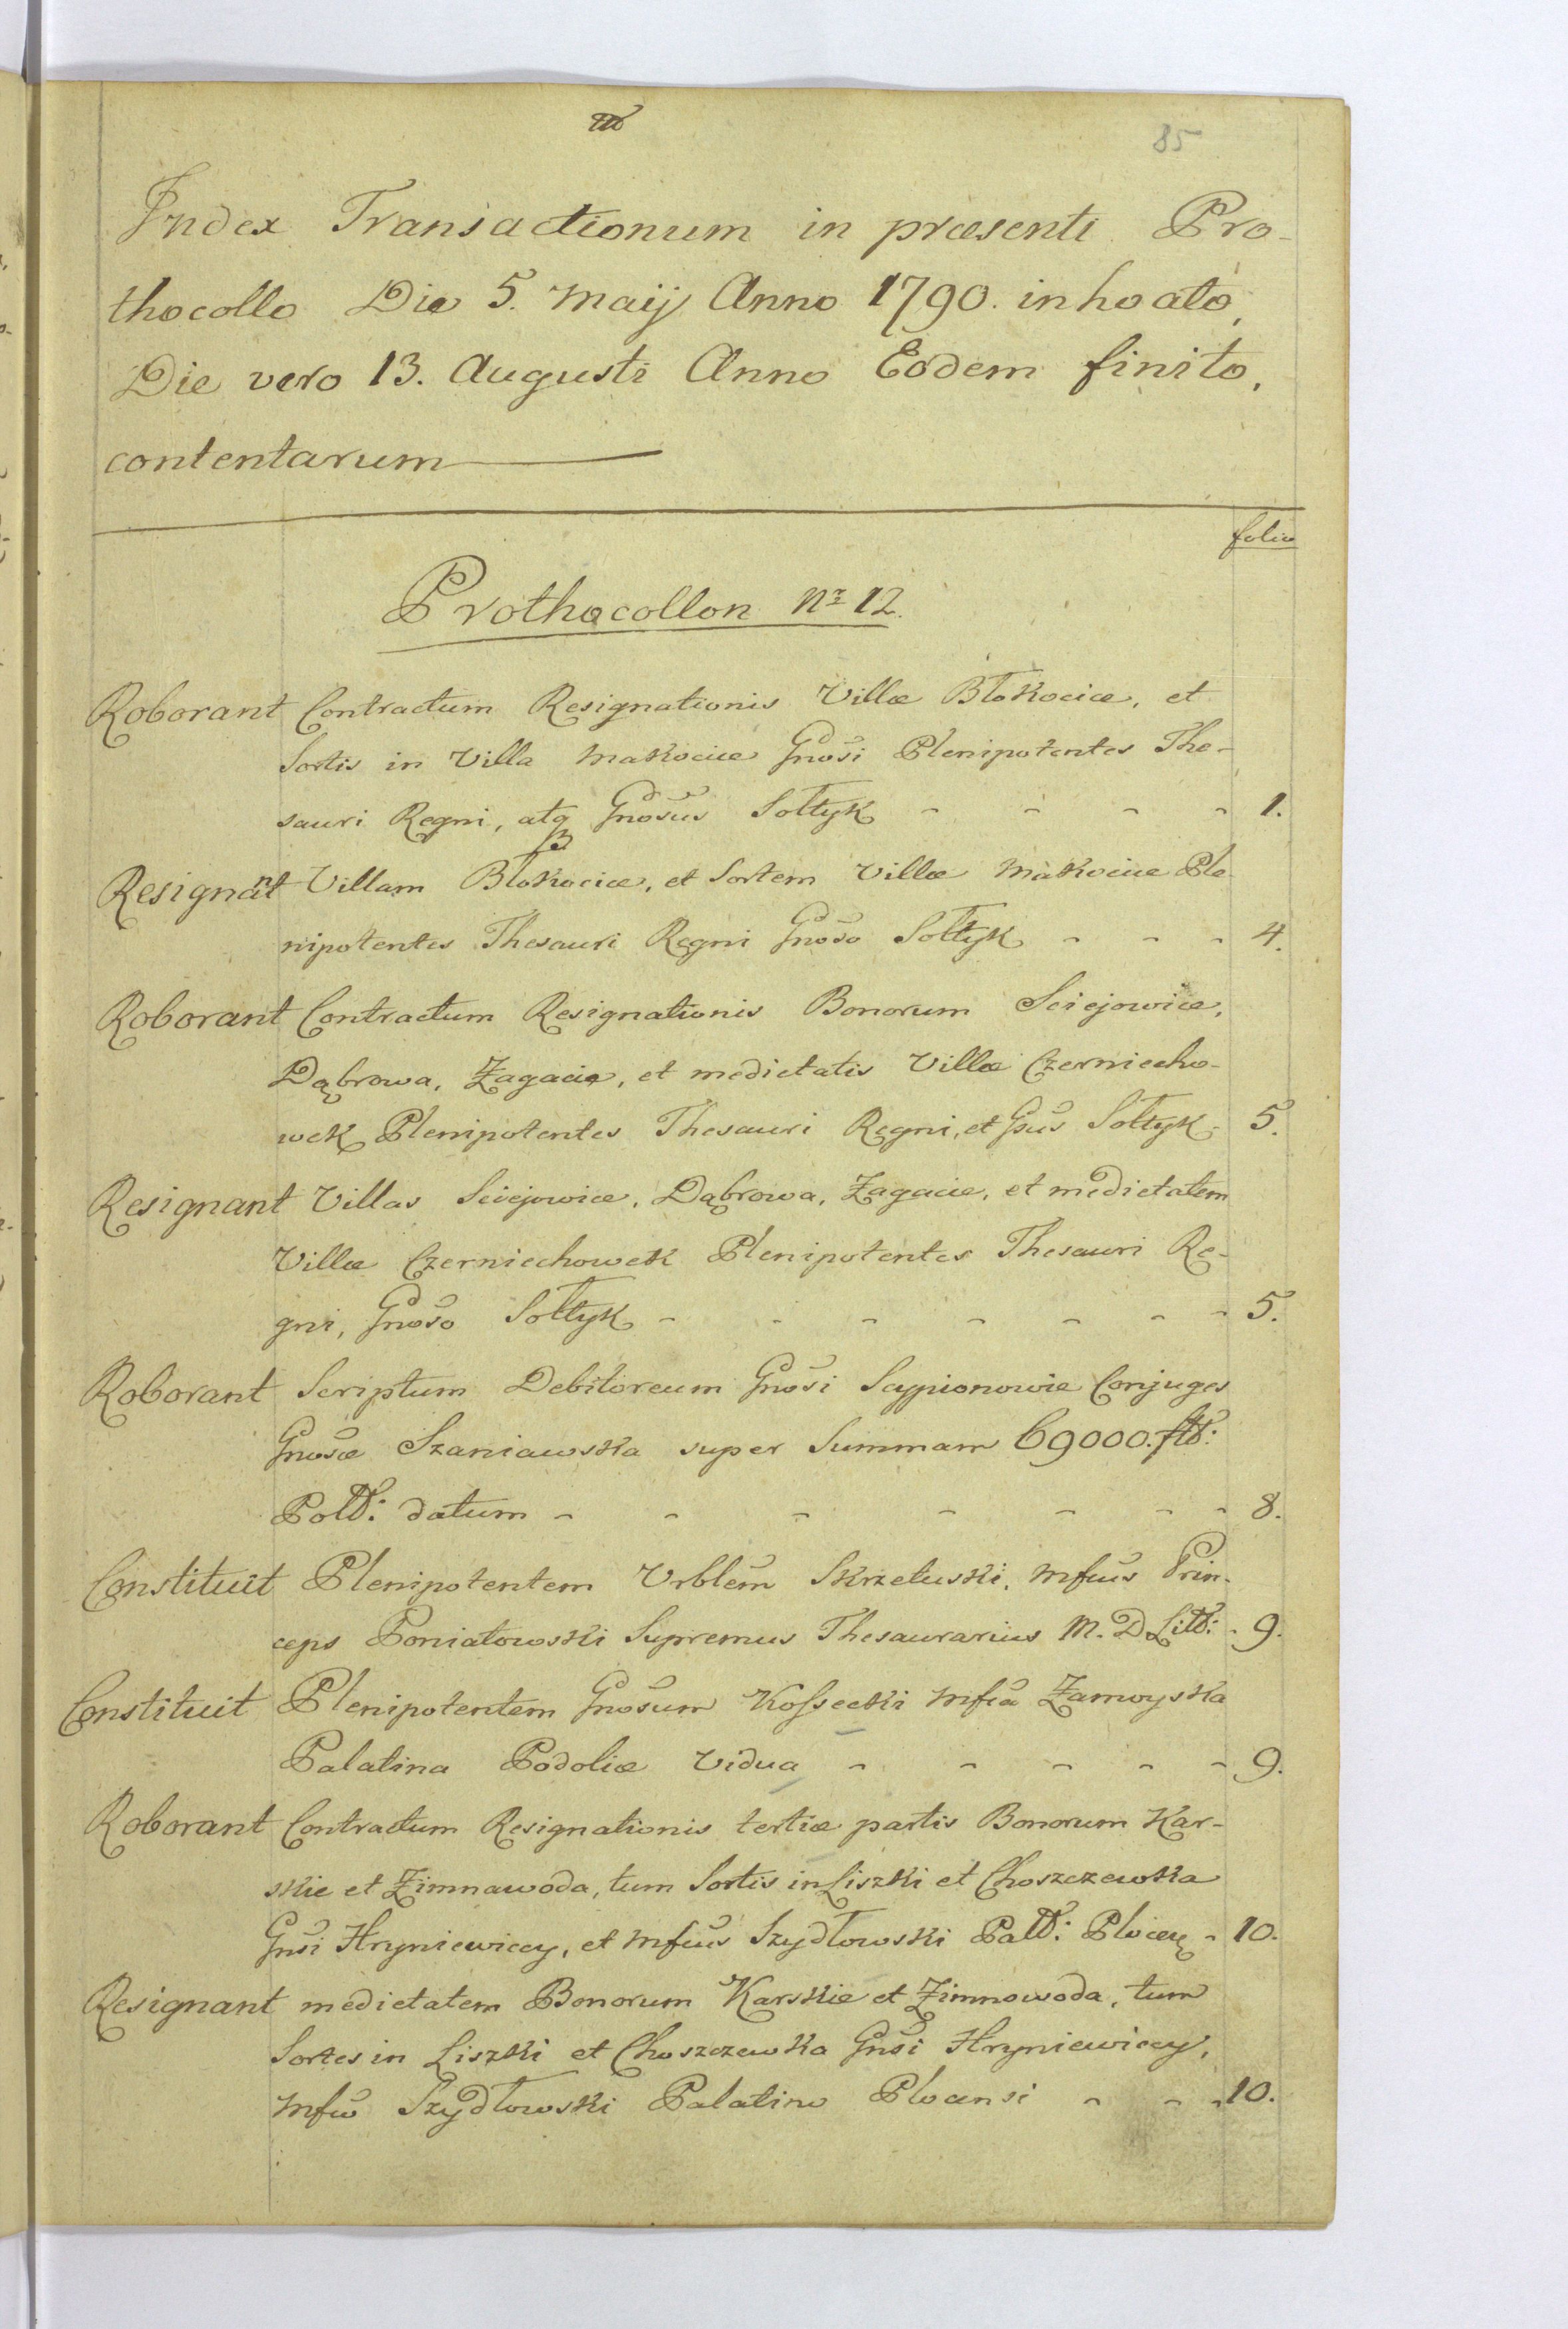 85
Index Transactionum in præsenti Pro-
thocollo Die 5. Maij Anno 1790. inhoato,
Die vero 13. Augusti Anno Eodem finito,
contentarum
folio
Prothocollon Nr 12.
Roborant Contractum Resignationis Villæ Błokocice, et
Sortis in Villa Makocice Gnosi Plenipotentes The-
sauri Regni, atq Gnosus Sołtyk - - - - 1.
Resignant Villam Błokocice, et Sortem Villæ Makocice Ple
nipotentes Thesauri Regni Gnoso Sołtyk - - - 4.
Roborant Contractum Resignationis Bonorum Sciejowice,
Dąbrowa, Zagacie, et medietatis Villæ Czerniecho-
wek Plenipotentes Thesauri Regni, et Gsus Sołtyk - 5.
Resignant Villas Sciejowice, Dąbrowa, Zagacie, et medietatem
Villæ Czerniechowek Plenipotentes Thesauri Re-
gni, Gnoso Sołtyk - - - - - - - 5.
Roborant Scriptum Debitoreum Gnosi Scypionowie Conjuges
Gnosæ Szaniawska super Summam 69000. fld:
Pold: datum - - - - - - - 8.
Constituit Plenipotentem Urblem Skrzetuski, Mfcus Prin-
ceps Poniatowski Supremus Thesaurarius M. D Litd: - 9.
Constituit Plenipotentem Gnosum Kossecki Mfca Zamoyska
Palatina Podoliæ Vidua - - - - - 9.
Roborant Contractum Resignationis tertiæ partis Bonorum Kar-
skie et Zimnawoda, tum Sortis in Liszki et Choszczewka
Gnsi Hryniewiccy, et Mfcus Szydłowski Pald: Płoceń - 10.
Resignant medietatem Bonorum Karskie et Zimnowoda, tum
Sortes in Liszki et Choszczewka Gnsi Hryniewiccy,
Mfco Szydłowski Palatino Plocensi - - - 10.